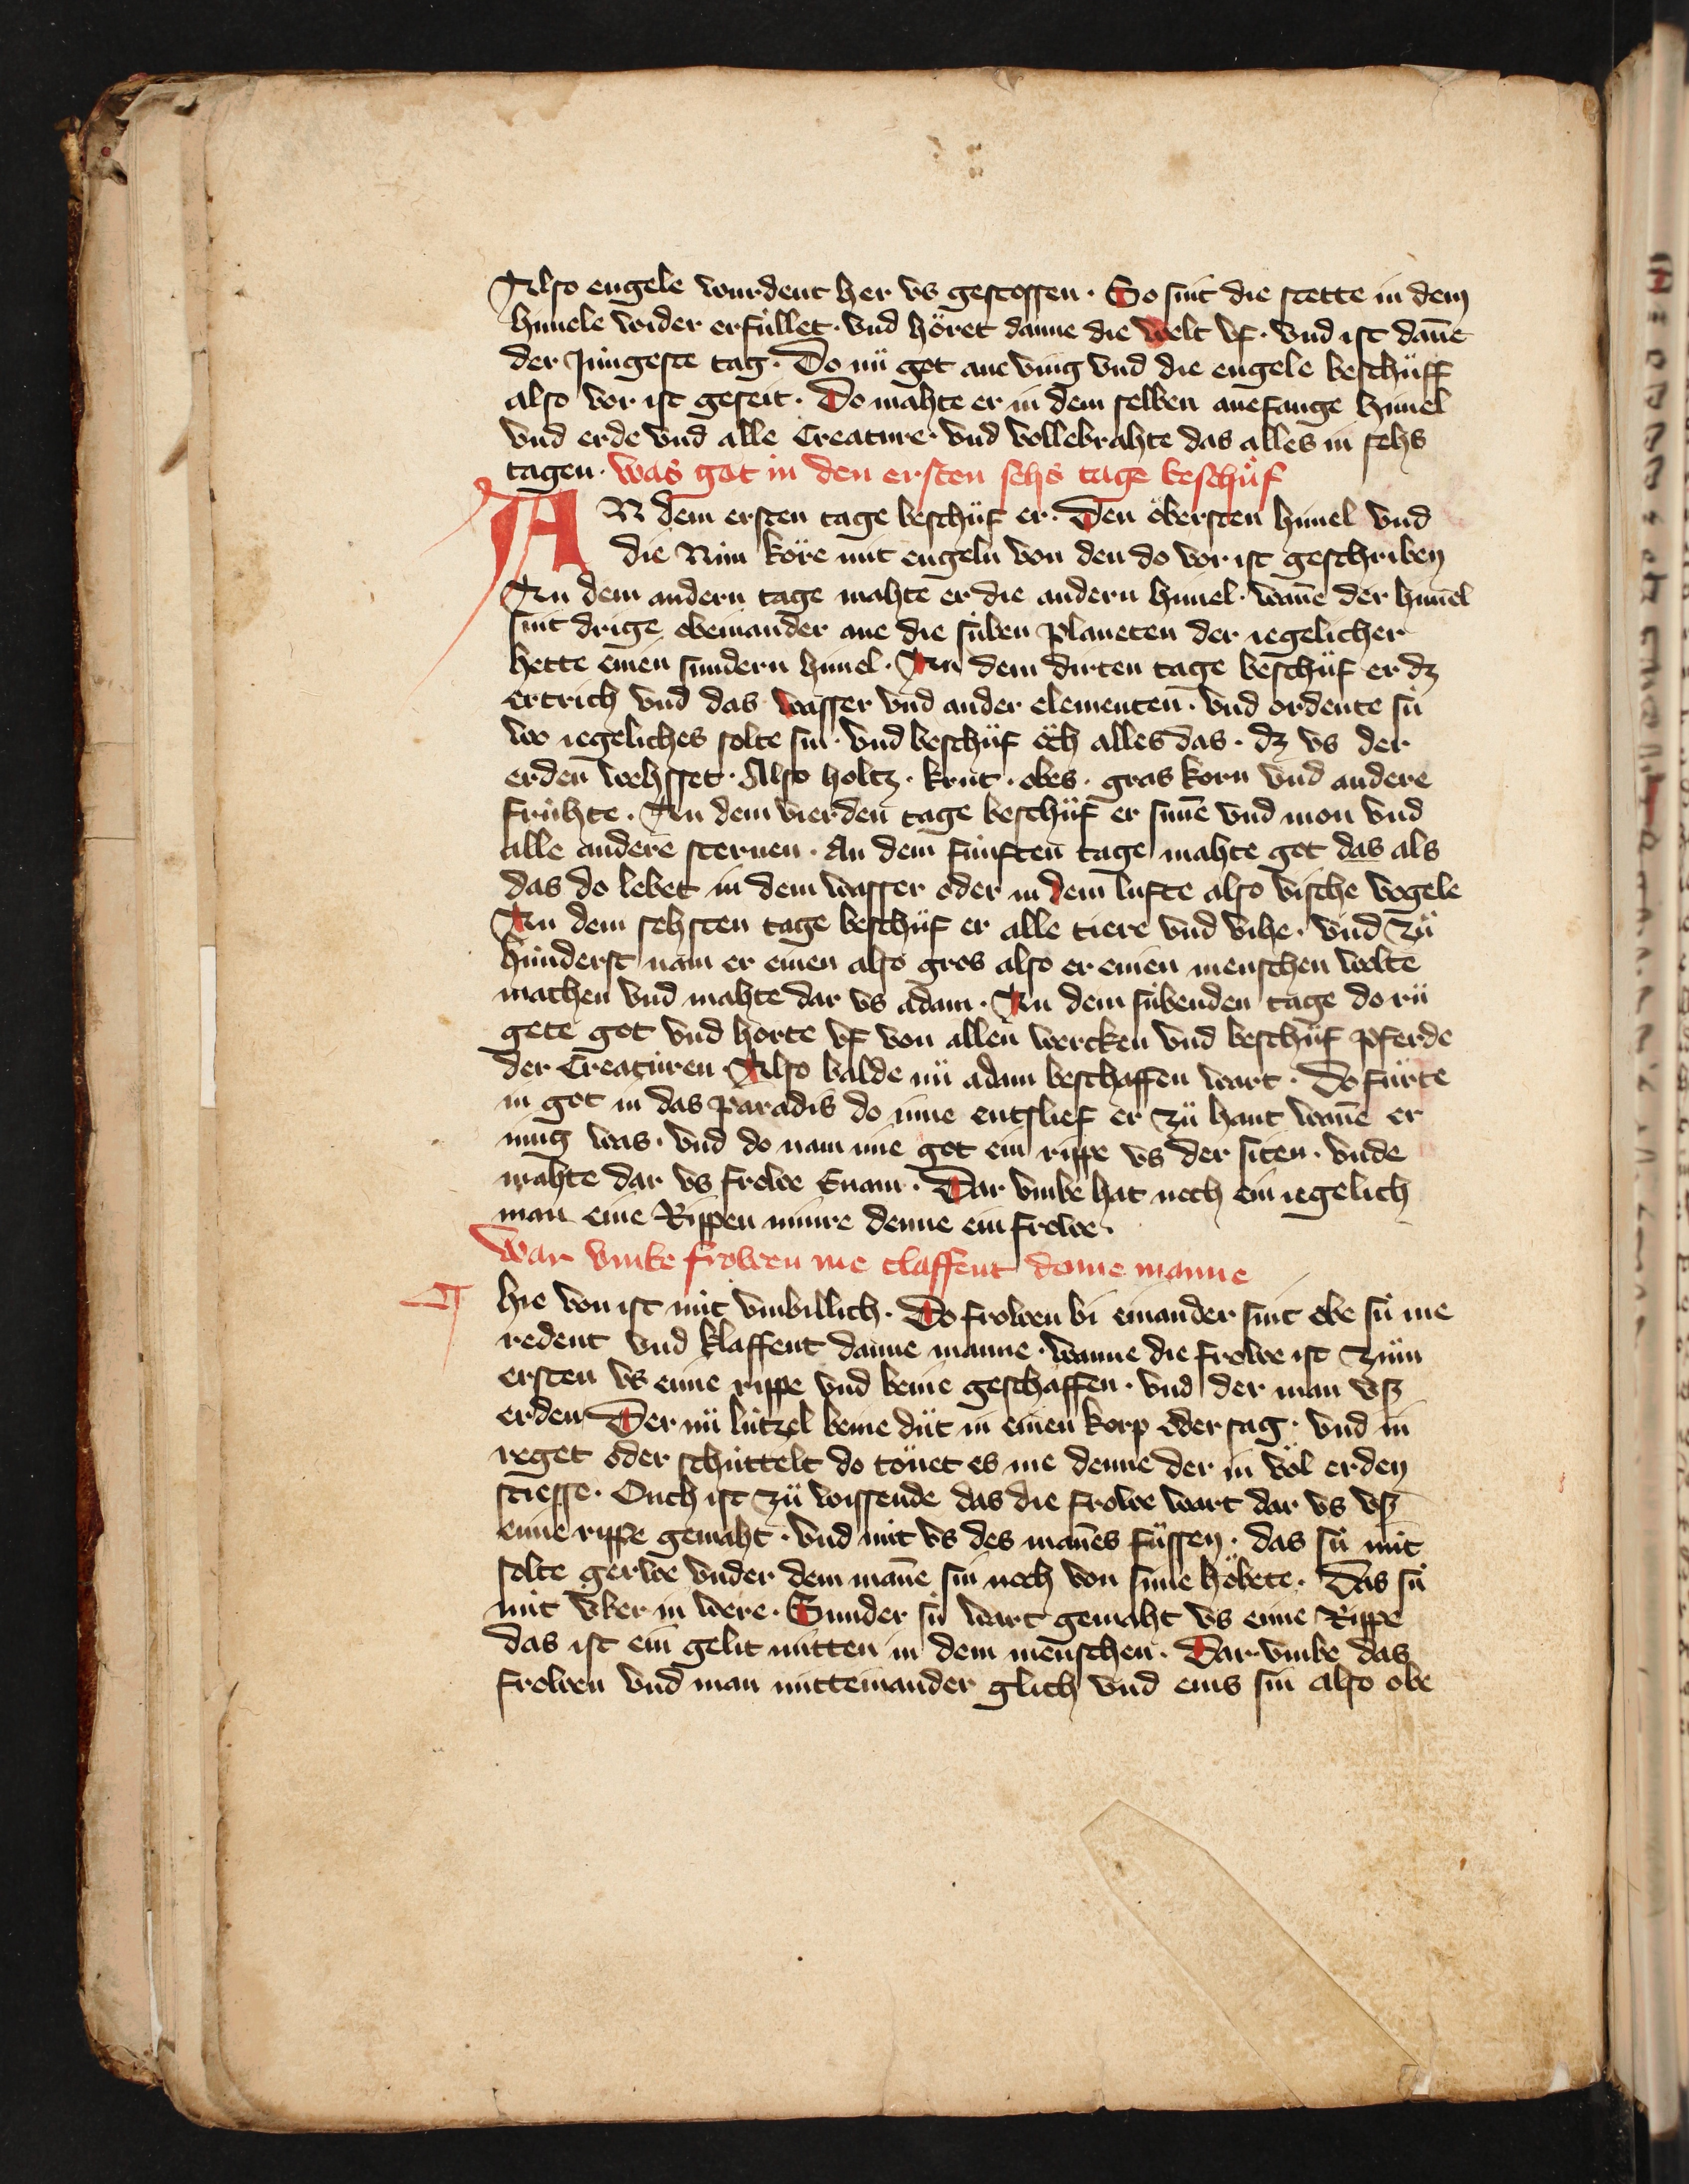 Also engele wurdent her vs gestossen · So sint die stette in dem
himele wider erfúllet · vnd höret danne die welt vf · vnd ist dan̄e
der Jungeste tag · Do nü got ane ving vnd die engele beschüff
also vor ist geseit · Do mahte er in dem selben anefange himel
vnd erde vnd alle Creature · vnd vollebrahte das alles in sehs
tagen · was got in den ersten sehs tage beschüf
AN dem ersten tage beschüf er · Den öbersten himel vnd
die Nún köre mit engeln von den do vor ist geschriben
An dem andern tage mahte er die andern himel · wan̄e der himel
sint drige obeinander ane die súben planeten der iegelicher
hette einen sundern himel · An dem dirten tage beschüf er dz
ertrich vnd das wasser vnd ander elementen · vnd ordente sú
wo iegeliches solte sin · vnd beschüf öch alles das · dz vs der
erden wehsset · Also holtz · krut · obes · gras korn vnd andere
frúhte · An dem vierden tage beschüf er sun̄e vnd mon vnd
alle andere sternen · An dem fúnften tage mahte got das als
das do lebet in dem wasser oder in dem lufte also vische vogele
An dem sehsten tage beschüf er alle tiere vnd vihe · vnd zü
hünderst nam er einen also gros also er einen menschen wolte
machen vnd mahte dar vs adam · An dem súbenden tage do rü
gete got vnd horte vf von allen wercken vnd beschüf pferde
der Creaturen · Also balde nü adam beschaffen wart · Do fürte
in got in das paradis do inne entslief er zü hant wan̄e er
múg was · vnd do nam ime got ein rippe vs der siten · vnde
mahte dar vs frowe Euam · Dar vmbe hat noch ein iegelich
man eine Rippen minre denne ein frowe ·
War vmbe frowen me claffent denne manne
hie von ist nút vnbillich · Do frowen bi einander sint obe sú me
redent vnd klaffent danne manne · wanne die frowe ist zům
ersten vs eime rippe vnd beine geschaffen · vnd der man vsz
erden Der nü lútzel beine düt in einen korp oder sag · vnd in
reget oder schúttelt do töuet es me denne der in völ erden
stiesse · Ouch ist zü wissende das die frowe wart dar vs vsz
eime rippe gemaht · vnd nút vs des man̄es füssen · das sú nút
solte gerwe vnder dem man̄e sin noch von sime höbete · Das sú
nút v́ber in were · Sunder sú wart gemaht vs eime Rippe
das ist ein gelit mitten in dem menschen · Dar vmbe das
frowen vnd man mitteinander glich vnd eins sin also obe